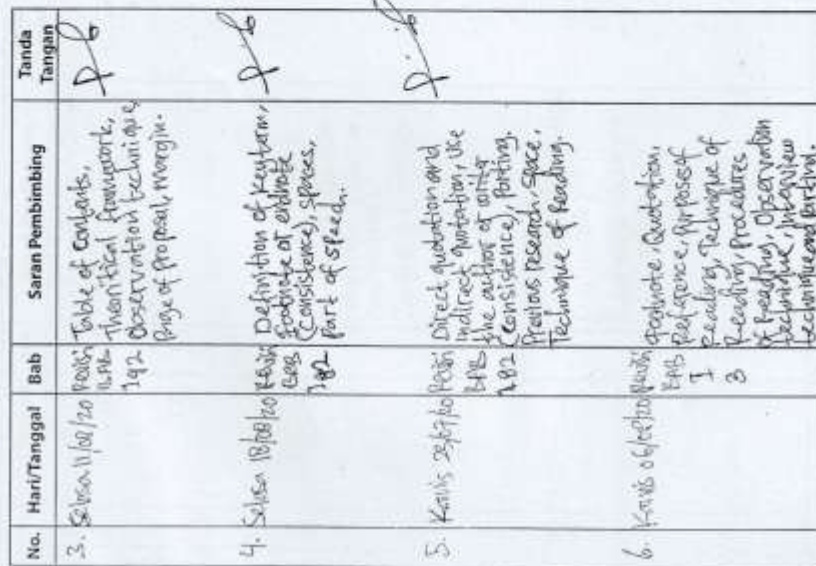 No. Hari/Tanggal Bab Saran Pembimbing Tanda Tangan
3. Selasa 11/02/20 Revisi BAB 1&2
Table of Contents,
Theoritical framework,
Observation technique,
Page of Proposal, Margin.
4. Selasa 18/02/20 Revisi BAB 1&2
Definition of keyterm,
Footnote or endnote
(Consistence), spaces,
Part of speech.
5. Kamis Revisi BAB 1&2
Direct quotation and
Indirect quotation, use
the author or writer
(consistence), Parting.
Previous research, space,
Technique of Reading.
6. Kamis Revisi BAB
Footnote Quotation,
Reference, Purpose of
Reading, Technique of
Reading, Procedures
of Reading, Observation
technique, Interview
technique and Parting.